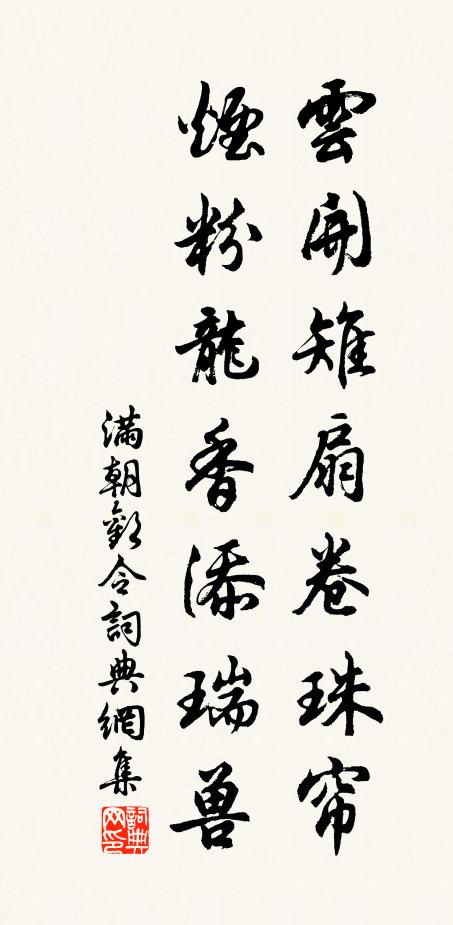 雲開雉扇卷珠帘
煙粉龍香添瑞兽
滿朝歡令詞典網集
詞典网印